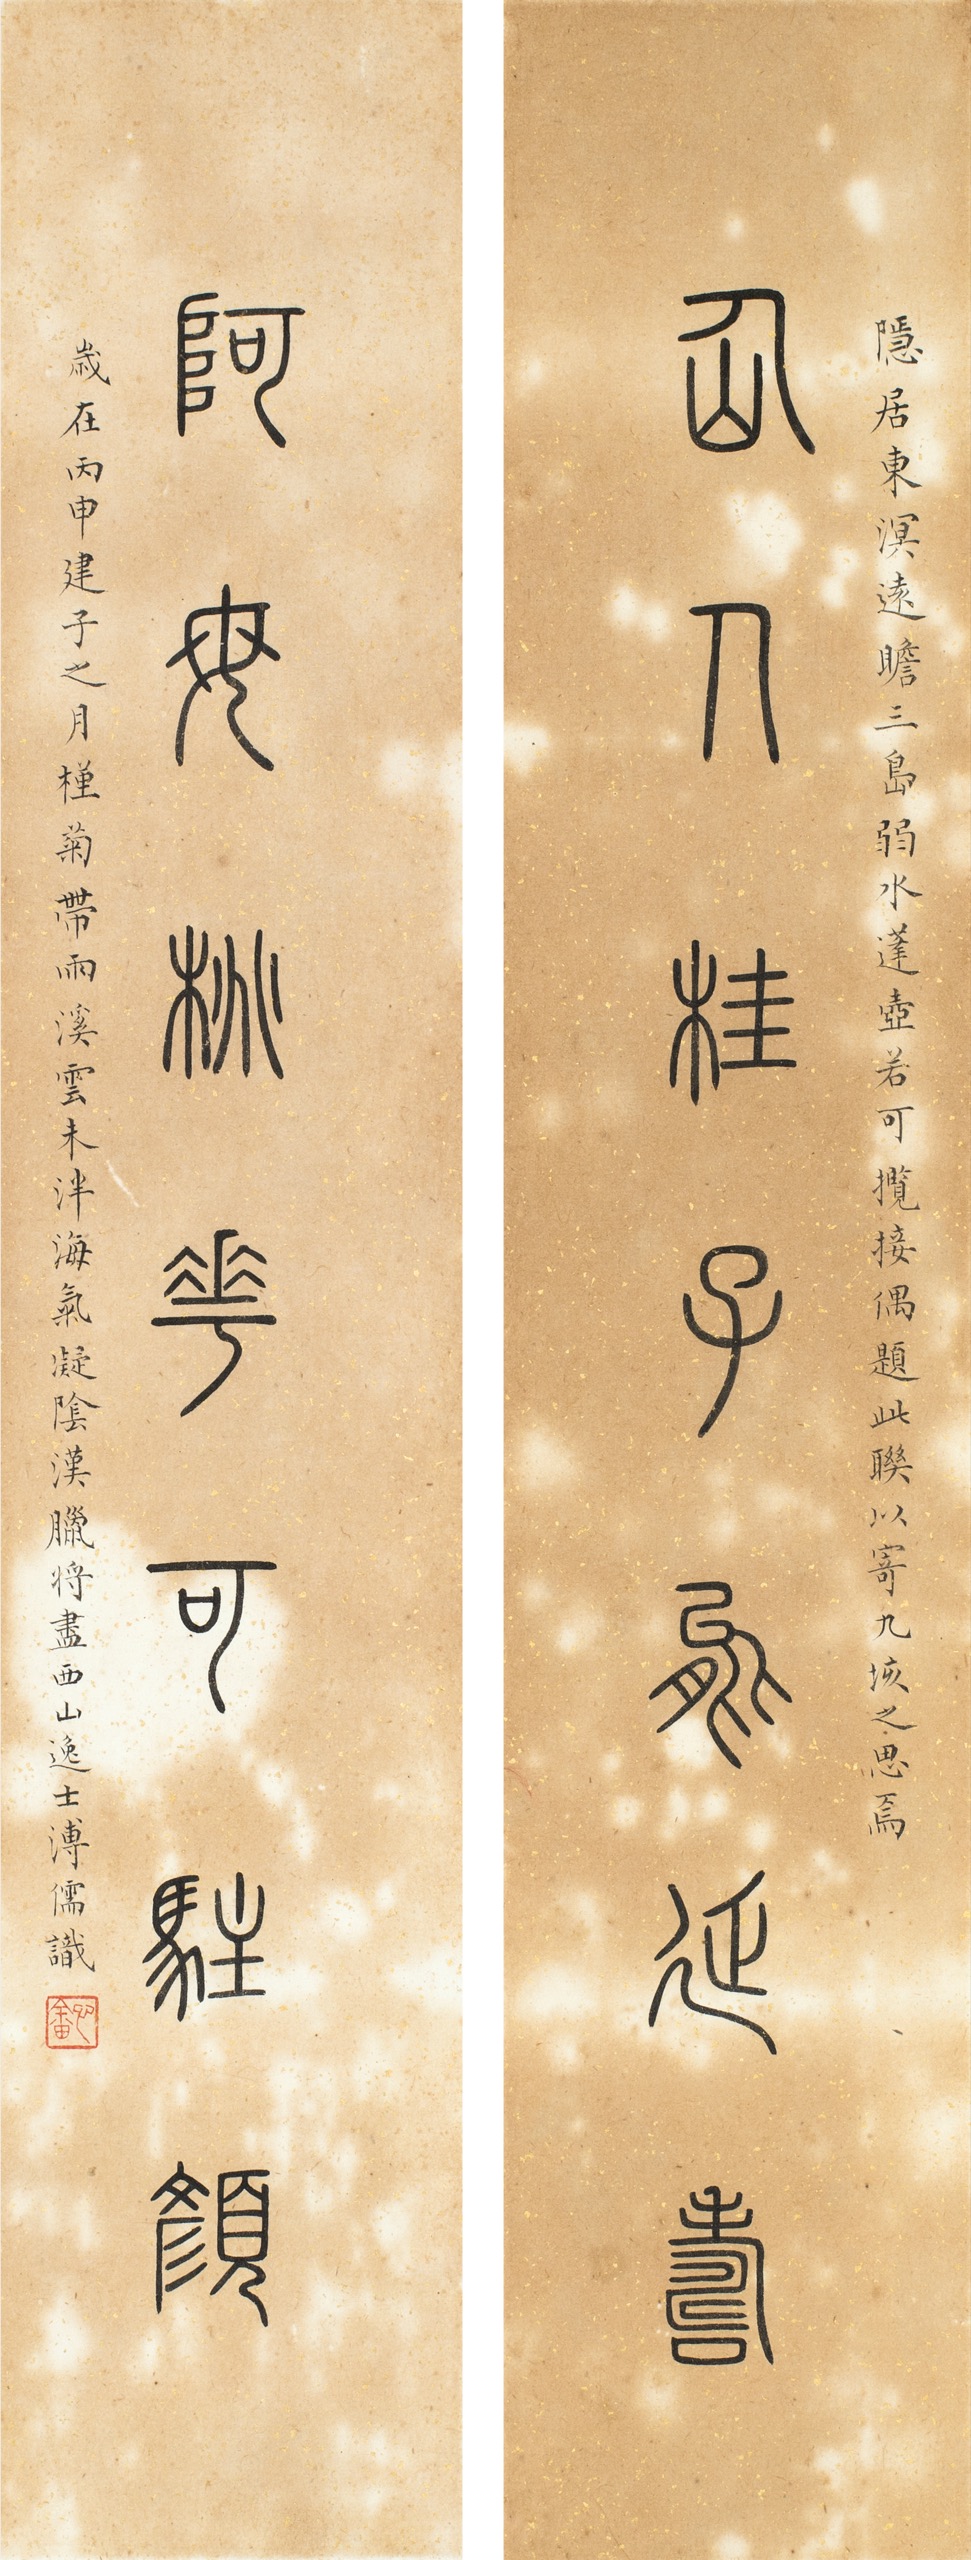 隱居東溟遠瞻三島弱水蓬壺若可攬接偶題此聯以寄九垓之思焉
仚人桂子兼延壽
阿母桃華可駐顏
歲在丙申建子之月槿菊帶雨溪雲未泮海氣凝陰漢臘將盡西山逸士溥儒識